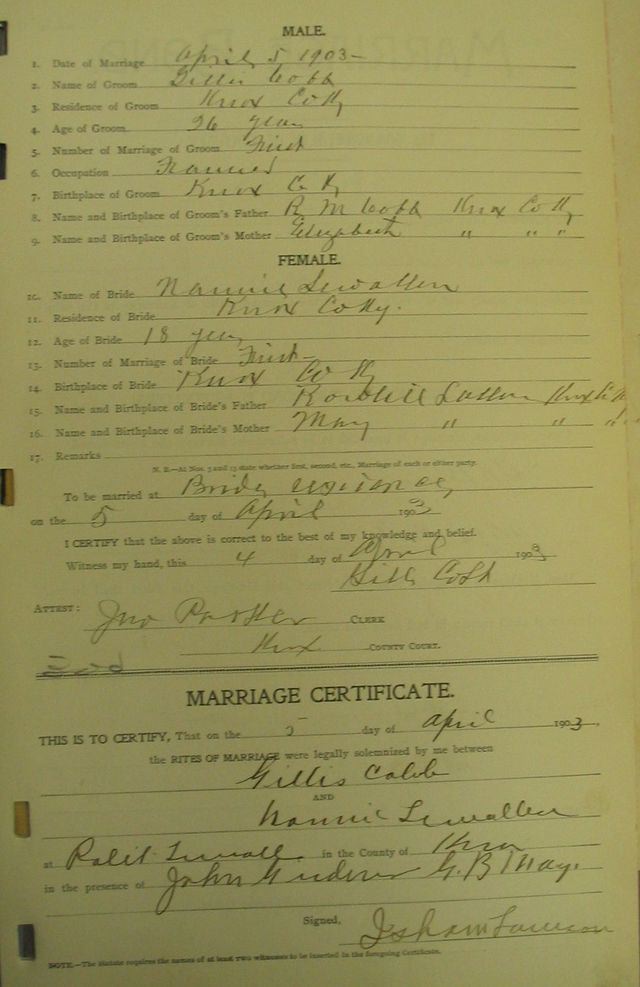 MALE.
1. Date of Marriage April 5 1903-
2. Name of Groom Gillis Cobb
3. Residence of Groom Knox Co Ky
4. Age of Groom 26 years
5. Number of Marriage of Groom First
6. Occupation Farmer
7. Birthplace of Groom Knox Co Ky
8. Name and Birthplace of Groom's Father R M Cobb Knox Co Ky
9. Name and Birthplace of Groom's Mother Elizabeth " " "
FEMALE.
10. Name of Bride Nannie Lewallen
11. Residence of Bride Knox Co Ky.
12. Age of Bride 18 years
13. Number of Marriage of Bride First-
14. Birthplace of Bride Knox Co K
15. Name and Birthplace of Bride's Father Knox
16. Name and Birthplace of Bride's Mother May " " "
17. Remarks
N. B.—At Nos. 5 and 13 state whether first, second, etc., Marriage of each or either party.
To be married at Brides
on the 5 day of April 1903
I CERTIFY that the above is correct to the best of my knowledge and belief.
Witness my hand, this 4 day of April 1903
Gillis Cobb
ATTEST: Jno Parker CLERK
Knox COUNTY COURT.
MARRIAGE CERTIFICATE.
THIS IS TO CERTIFY, That on the 5 day of April 1903,
the RITES OF MARRIAGE were legally solemnized by me between
Gillis Cobb
AND
Nannie Lewallen
at in the County of Knox
in the presence of John G. B. May.
Signed, Isham Lawson
NOTE.—The Statute requires the names of at least two witnesses to be inserted in the foregoing Certificate.